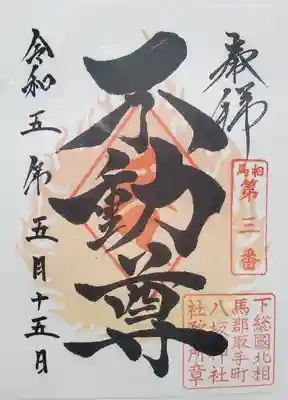 相馬
第三番
下総國北相
馬郡取手町
八坂神社
社務所章
不動尊
令和五年五月十五日